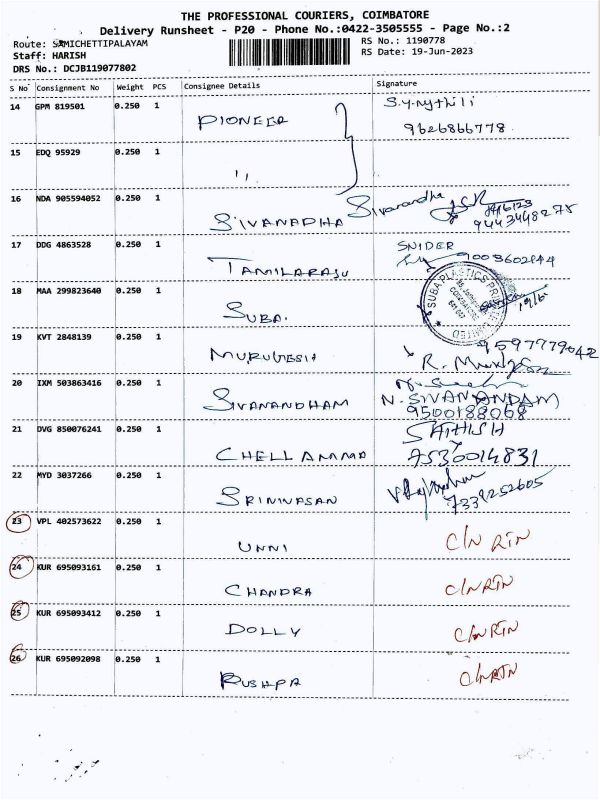 THE PROFESSIONAL COURIERS, COIMBATORE
Delivery Runsheet - P20 - Phone No.:0422-3505555 - Page No.:2
Route: SAMICHETTIPALAYAM
RS No.: 1190778
Staff: HARISH
RS Date: 19-Jun-2023
DRS No.: DCJB119077802
S No Consignment No Weight PCS Consignee Details Signature
14 GPM 819501 0.250 1 PIONEER S.y.nythili
9626866778
15 EDQ 95929 0.250 1 "
16 NDA 905594052 0.250 1 SIVANADHA Sivanandha
9443448275
17 DDG 4863528 0.250 1 TAMILARASU SNIDER
9003602844
18 MAA 299823640 0.250 1 SUBA. SUBA PLASTICS PRIVATE LIMITED
19/6
19 KVT 2848139 0.250 1 MURUGESH 9597779042
20 IXM 503863416 0.250 1 SIVANANDHAM N. SIVANANDAM
9500188068
21 DVG 850076241 0.250 1 CHELLAMMA SATHISH
7530014831
22 MYD 3037266 0.250 1 SRINIVASAN
7339252605
23 VPL 402573622 0.250 1 UNNI C/N RTN
24 KUR 695093161 0.250 1 CHANDRA C/N RTN
25 KUR 695093412 0.250 1 DOLLY C/N RTN
26 KUR 695092098 0.250 1 PUSHPA C/N RTN